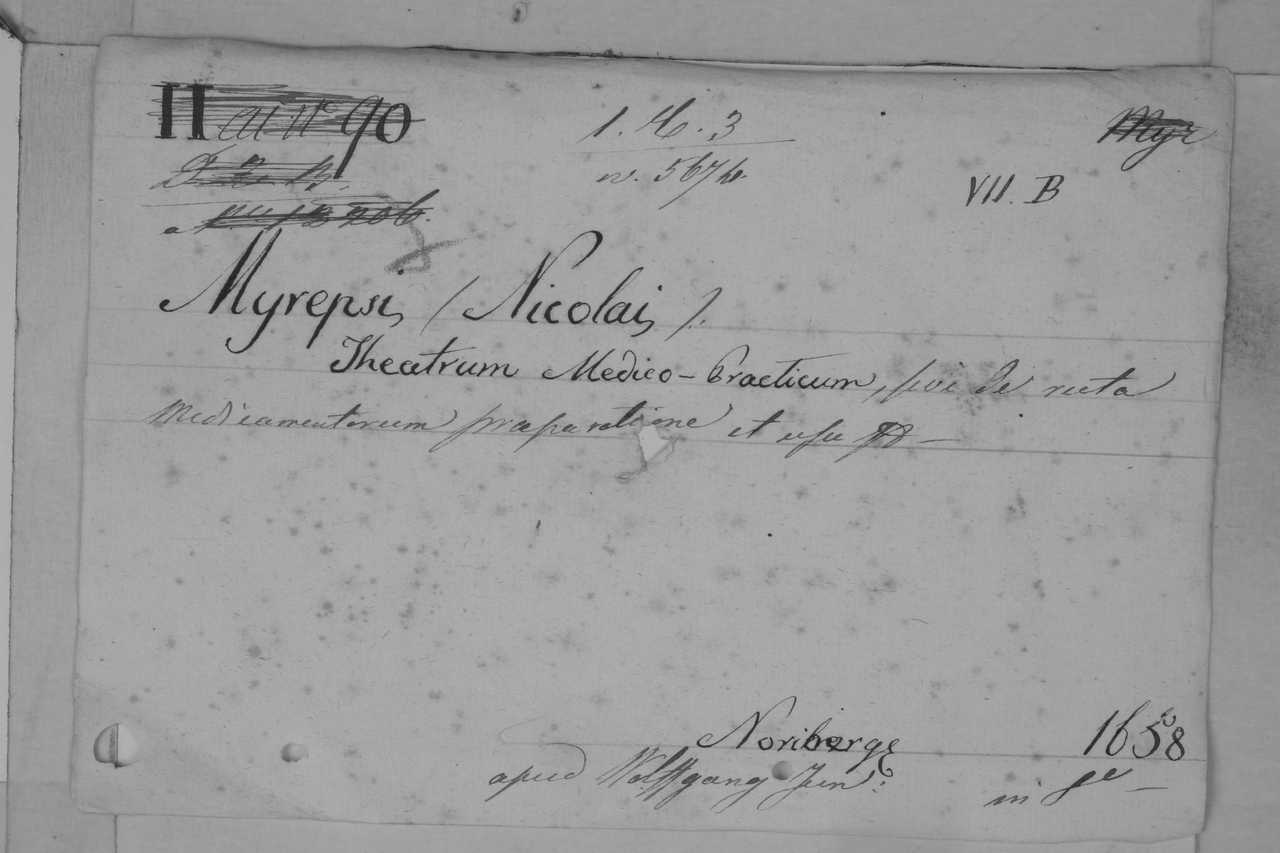 II 90
1. H. 3
Myr
n. 5674.
VII. B
Myrepsi, (Nicolai,).
Theatrum Medico-Practicum, sive de recta
Medicamentorum praeparatione et usu
Noribergę 1658
apud Wolffgang Jun:
in 8º